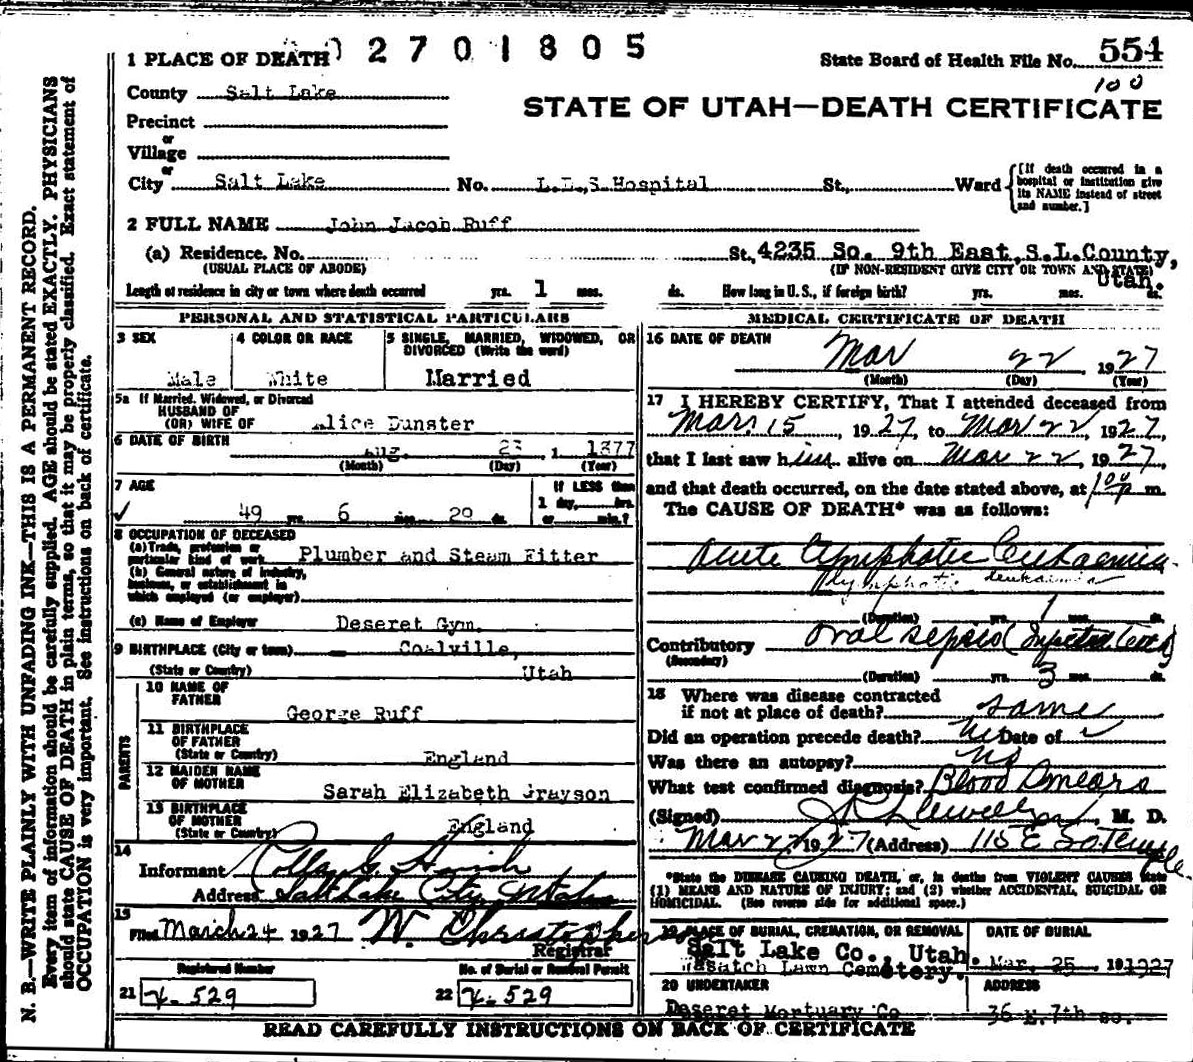 N. B.—WRITE PLAINLY WITH UNFADING INK—THIS IS A PERMANENT RECORD.
Every item of information should be carefully supplied. AGE should be stated EXACTLY. PHYSICIANS
should state CAUSE OF DEATH in plain terms, so that it may be properly classified. Exact statement of
OCCUPATION is very important. See instructions on back of certificate.
2701805
State Board of Health File No. 554
100
1 PLACE OF DEATH
STATE OF UTAH—DEATH CERTIFICATE
County Salt Lake
Precinct
or
Village
or
City Salt Lake No. L.D.S Hospital St., Ward
[If death occurred in a
hospital or institution give
its NAME instead of street
and number.]
2 FULL NAME John Jacob Ruff
(a) Residence. No. St. 4235 So. 9th East, S.L.County,
Utah.
(USUAL PLACE OF ABODE) (IF NON-RESIDENT GIVE CITY OR TOWN AND STATE)
Length of residence in city or town where death occurred yrs. 1 mos. ds. How long in U. S., if foreign birth? yrs. mos. ds.
PERSONAL AND STATISTICAL PARTICULARS
3 SEX
Male
4 COLOR OR RACE
White
5 SINGLE, MARRIED, WIDOWED, OR
DIVORCED (Write the word)
Married
5a If Married, Widowed, or Divorced
HUSBAND OF
(OR) WIFE OF Alice Dunster
6 DATE OF BIRTH Aug. 23, 1877
(Month) (Day) (Year)
7 AGE
49 yrs. 6 mos. 29 ds.
If LESS than
1 day, hrs.
or min.?
8 OCCUPATION OF DECEASED
(a) Trade, profession or
particular kind of work Plumber and Steam Fitter
(b) General nature of industry,
business, or establishment in
which employed (or employer)
(c) Name of Employer Deseret Gym.
9 BIRTHPLACE (City or town) Coalville,
(State or Country) Utah
PARENTS
10 NAME OF
FATHER
George Ruff
11 BIRTHPLACE
OF FATHER
(State or Country) England
12 MAIDEN NAME
OF MOTHER
Sarah Elizabeth Grayson
13 BIRTHPLACE
OF MOTHER
(State or Country) England
14
Informant
Address Salt Lake City, Utah
15
Filed March 24 1927 W. Christopherson
Registrar
Registered Number
21 529
No. of Burial or Removal Permit
22 529
MEDICAL CERTIFICATE OF DEATH
16 DATE OF DEATH
Mar 22 1927
(Month) (Day) (Year)
17 I HEREBY CERTIFY, That I attended deceased from
Mar. 15, 1927, to Mar 22, 1927,
that I last saw him alive on Mar 22, 1927
and that death occurred, on the date stated above, at 1 00 p m.
The CAUSE OF DEATH* was as follows:
Acute Lymphatic Leukaemia
Lymphatic leukaemia
(Duration) yrs. 1 mos. ds.
Contributory Oral sepsis (Infected teeth)
(Secondary)
(Duration) yrs. 3 mos. ds.
18 Where was disease contracted
if not at place of death? same
Did an operation precede death? No Date of
Was there an autopsy? No
What test confirmed diagnosis? Blood Smears
(Signed) M. D.
Mar 22, 1927 (Address) 115 E So Temple
*State the DISEASE CAUSING DEATH, or, in deaths from VIOLENT CAUSES state
(1) MEANS AND NATURE OF INJURY; and (2) whether ACCIDENTAL, SUICIDAL OR
HOMICIDAL. (See reverse side for additional space.)
19 PLACE OF BURIAL, CREMATION, OR REMOVAL
Salt Lake Co., Utah.
Wasatch Lawn Cemetery.
DATE OF BURIAL
Mar. 25, 1927
20 UNDERTAKER
Deseret Mortuary Co
ADDRESS
36 E. 7th so.
READ CAREFULLY INSTRUCTIONS ON BACK OF CERTIFICATE